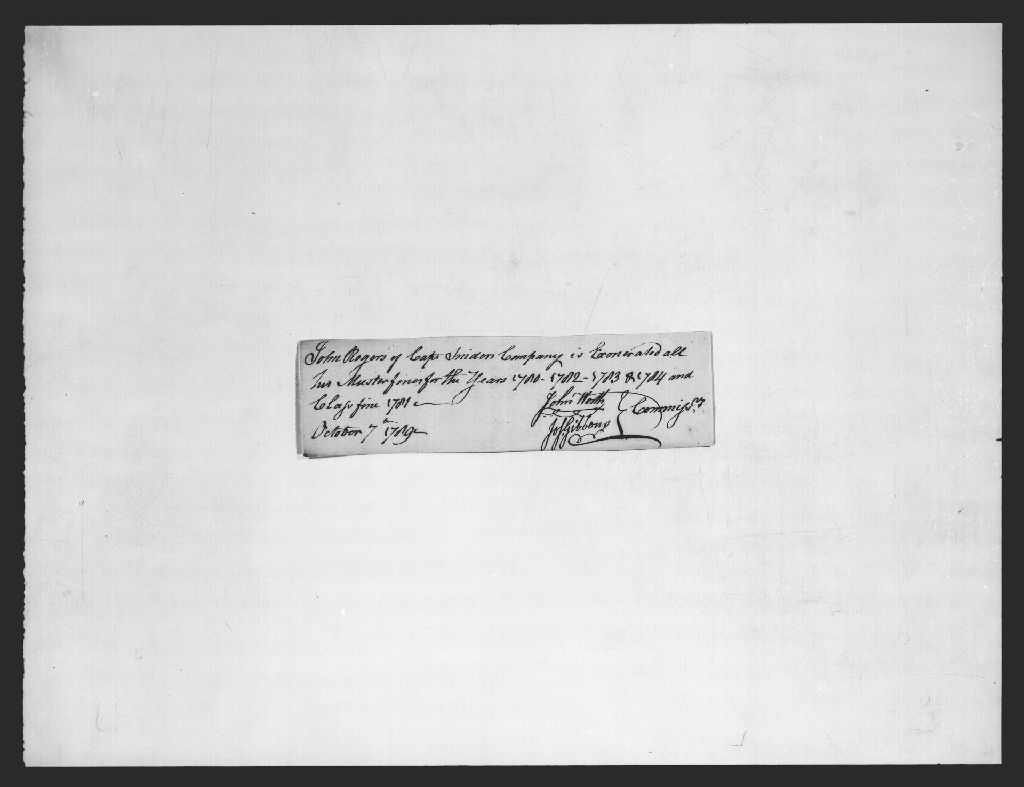 John Rogers of Capt Snider Company is Exonerated all
his Muster fines for the Years 1780 - 1782 - 1783 & 1784 and
Class fine 1781
John Worth
Commissrs
October 7th 1789
Jos Gibbons